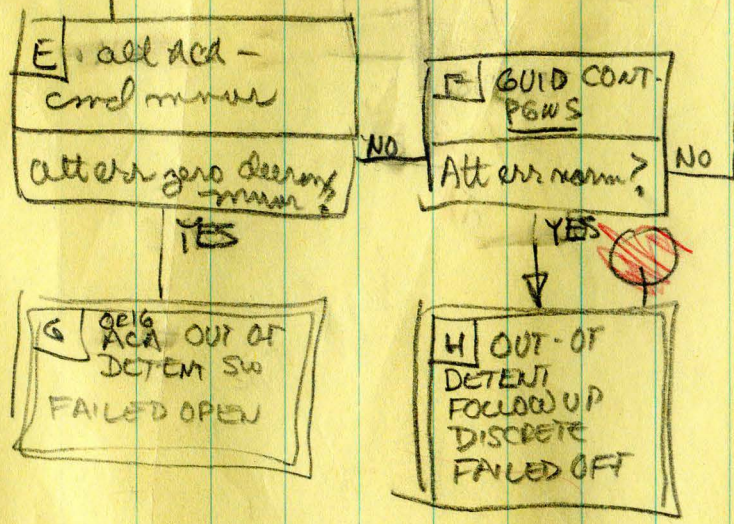 E . all ACA -
cmd mnvr
att err zero during
mnvr ?
NO
YES
F GUID CONT -
PGNS
Att err norm ?
NO
YES
G ORIG
ACA OUT OF
DETENT SW
FAILED OPEN
H OUT-OF
DETENT
FOLLOW UP
DISCRETE
FAILED OFF